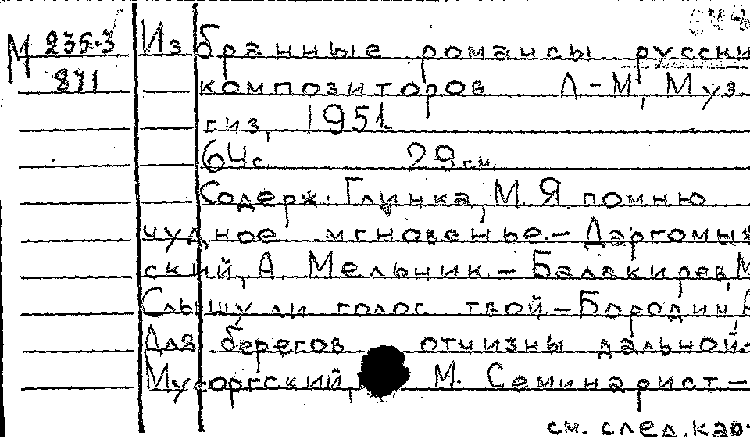 М 235-3
871
Избранные романсы русски
композиторов Л-М, Муз
гиз, 1951
64 с. 29 см.
Содерж. Глинка, М. Я помню
чудное мгновенье.- Даргомыж
ский, А. Мельник.- Балакирев, М
Слышу ли голос твой - Бородин, А
Для берегов отчизны дальной.
Мусоргский, М. Семинарист -
см. след. кар-